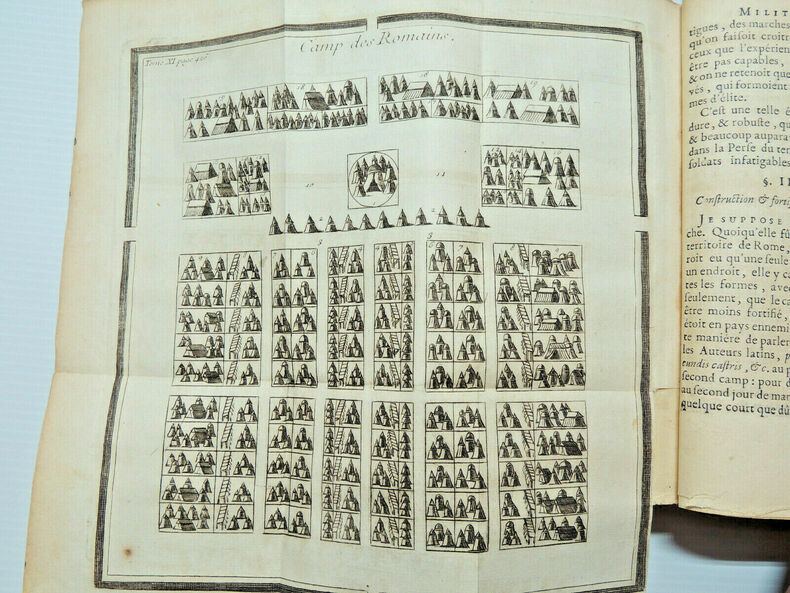 Camp des Romains.
Tome XI page 426
18
16
19
10
11
2
5
5
MILIT
tigues, des marches
qu'on faisoit croitr
ceux que l'expérien
être pas capables,
& on ne retenoit que
vés, qui formoient
mes d'élite.
C'est une telle é
dure, & robuste, qu
& beaucoup aupara
dans la Perse du ter
soldats infatigables
§. II
Construction & fortif
JE SUPPOSE
ché. Quoiqu'elle fû
territoire de Rome,
roit eu qu'une seule
un endroit, elle y ca
tes les formes, avec
seulement, que le ca
être moins fortifié,
étoit en pays ennemi
te manière de parler
les Auteurs latins, p
eundis castris, &c. au p
second camp: pour d
au second jour de mar
quelque court que dû